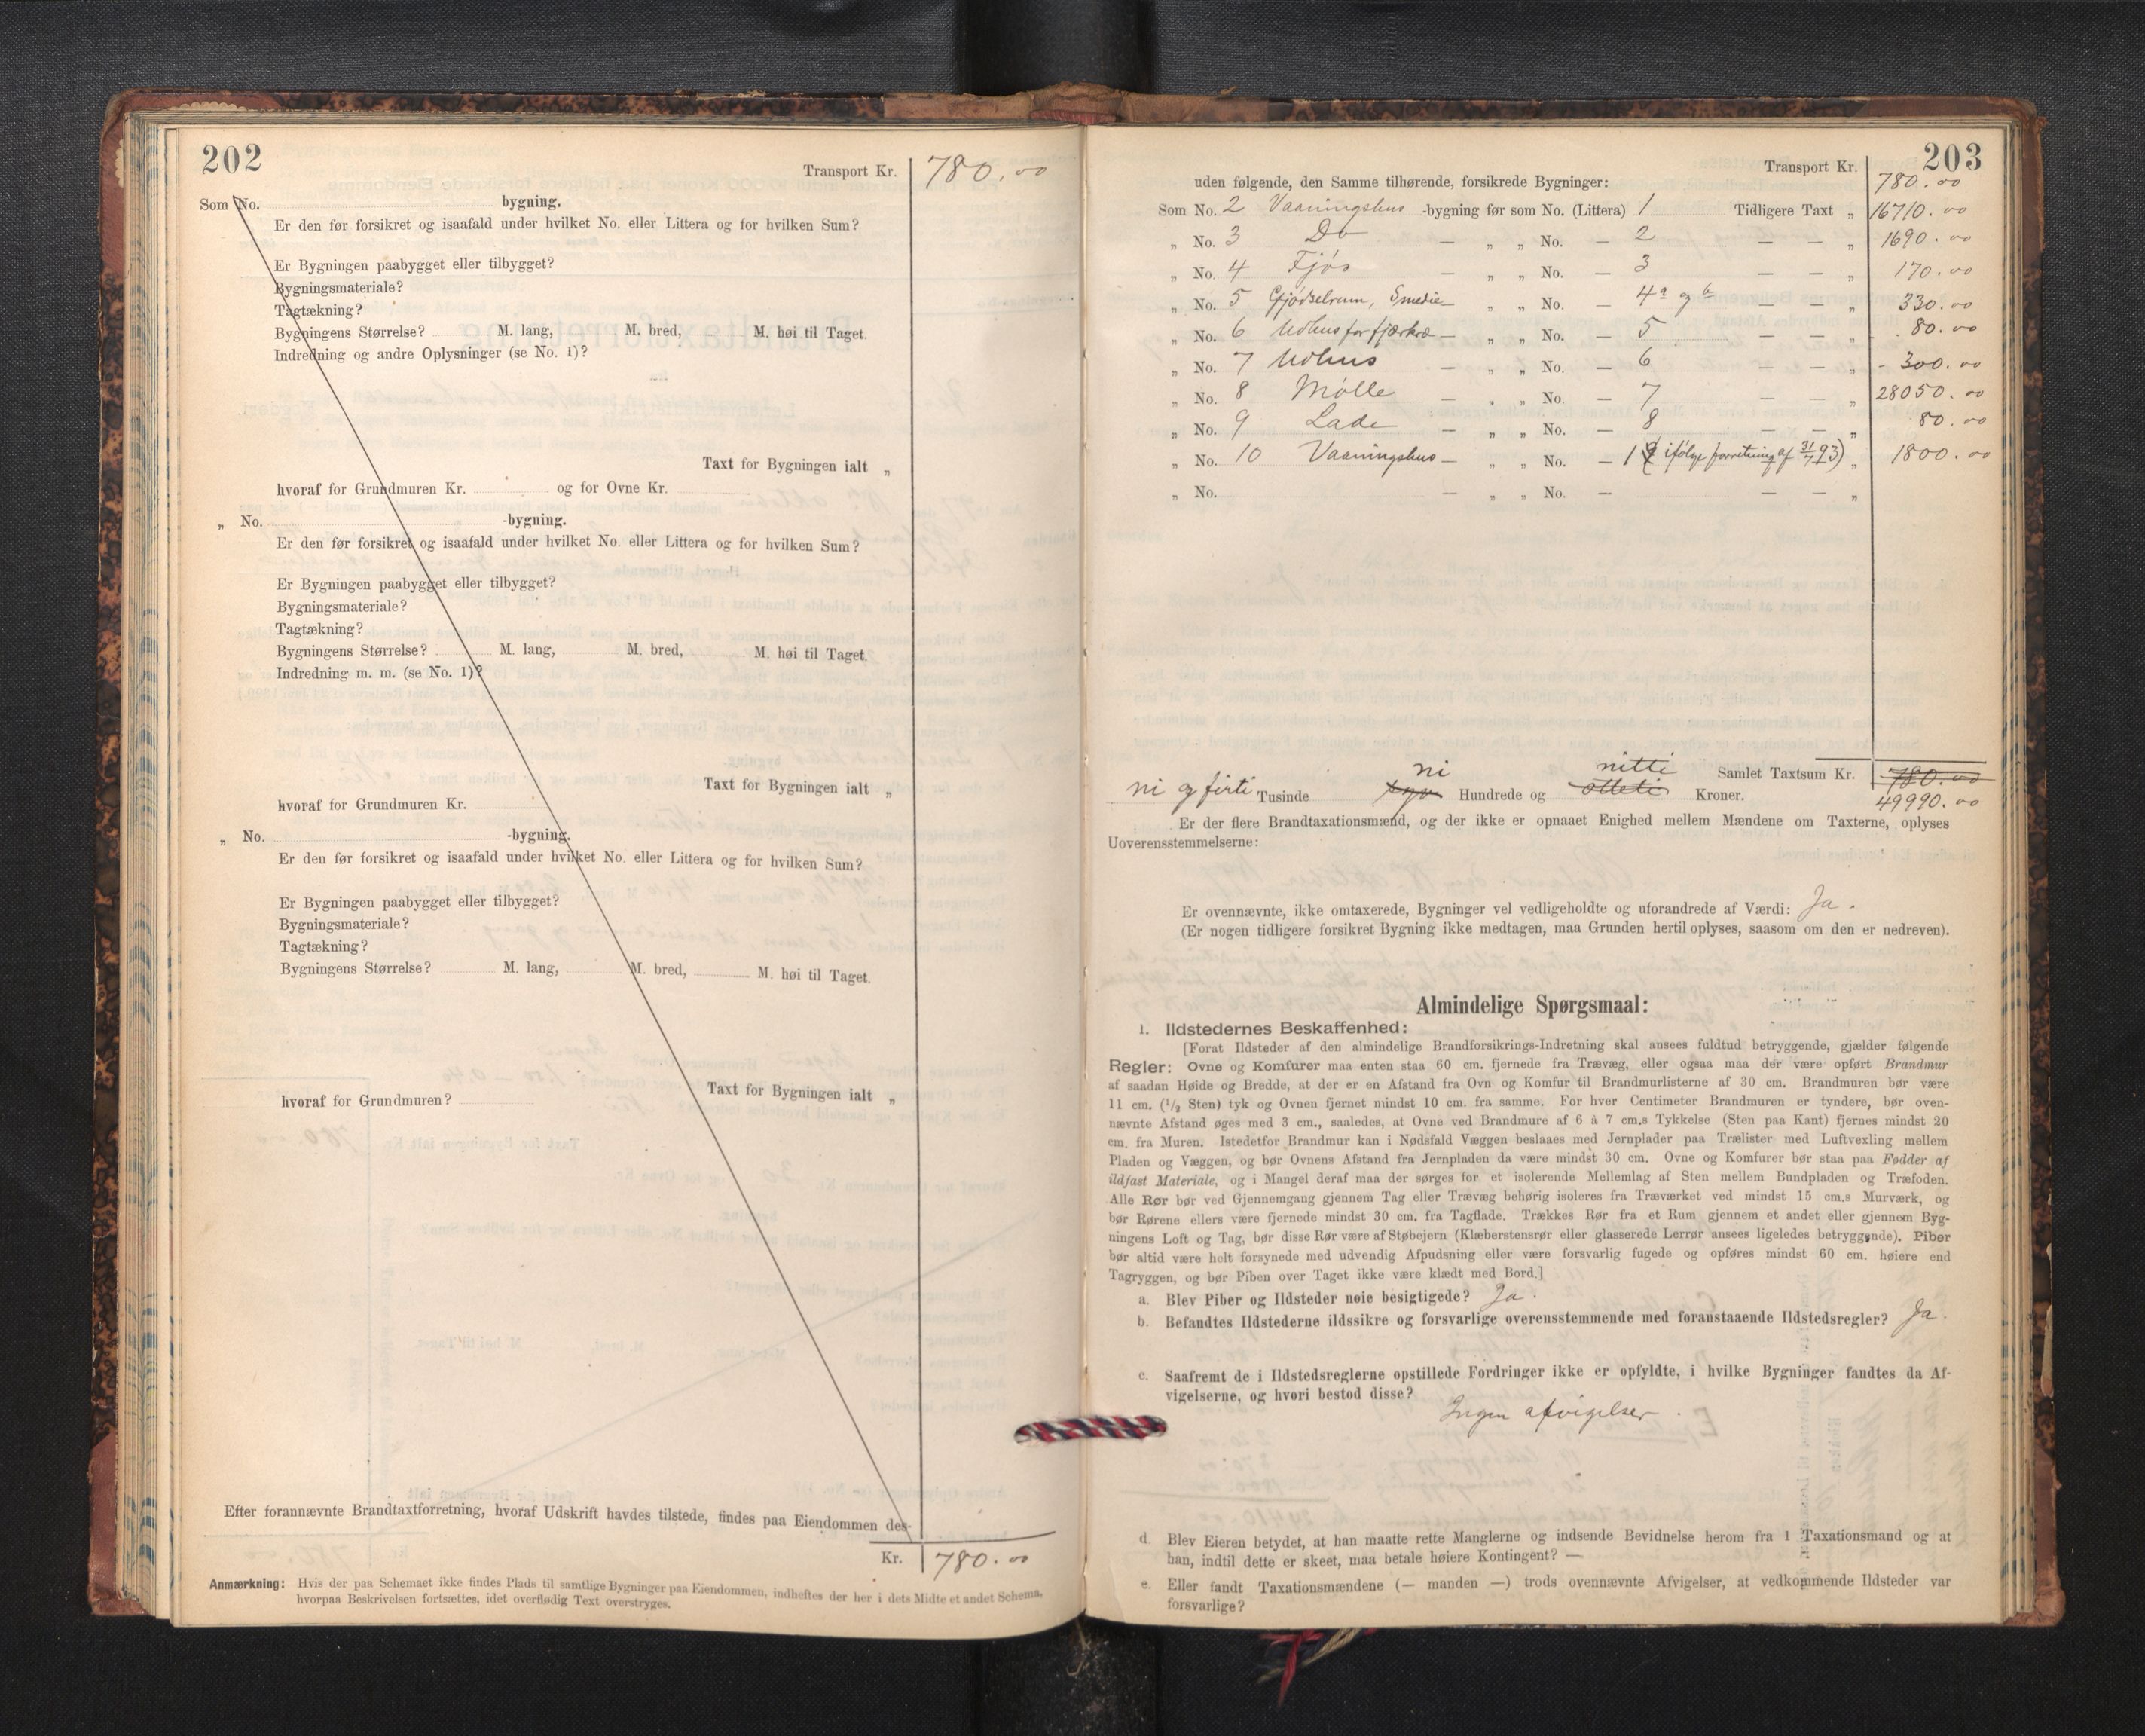 202
Transport Kr. 780.00
Som No. bygning.
Er den før forsikret og isaafald under hvilket No. eller Littera og for hvilken Sum?
Er Bygningen paabygget eller tilbygget?
Bygningsmateriale?
Tagtækning?
Bygningens Størrelse? M. lang, M. bred, M. høi til Taget.
Indredning og andre Oplysninger (se No. 1)?
Taxt for Bygningen ialt „
hvoraf for Grundmuren Kr. og for Ovne Kr.
„ No. -bygning.
Er den før forsikret og isaafald under hvilket No. eller Littera og for hvilken Sum?
Er Bygningen paabygget eller tilbygget?
Bygningsmateriale?
Tagtækning?
Bygningens Størrelse? M. lang, M. bred, M. høi til Taget.
Indredning m. m. (se No. 1)?
Taxt for Bygningen ialt „
hvoraf for Grundmuren Kr.
„ No. -bygning.
Er den før forsikret og isaafald under hvilket No. eller Littera og for hvilken Sum?
Er Bygningen paabygget eller tilbygget?
Bygningsmateriale?
Tagtækning?
Bygningens Størrelse? M. lang, M. bred, M. høi til Taget.
Taxt for Bygningen ialt „
hvoraf for Grundmuren?
Efter forannævnte Brandtaxtforretning, hvoraf Udskrift havdes tilstede, findes paa Eiendommen des-
Kr. 780.00
Anmærkning: Hvis der paa Schemaet ikke findes Plads til samtlige Bygninger paa Eiendommen, indheftes der her i dets Midte et andet Schema,
hvorpaa Beskrivelsen fortsættes, idet overflødig Text overstryges.
203
Transport Kr. 780.00
uden følgende, den Samme tilhørende, forsikrede Bygninger:
Som No. 2 Vaaningshus -bygning før som No. (Littera) 1 Tidligere Taxt „ 16710.00
„ No. 3 Do — „ „ No. — 2 — — „ 1690.00
„ No. 4 Fjøs — „ „ No. — 3 — — „ 170.00
„ No. 5 Gjødselrum, Smedie — „ „ No. — 4a og b — — „ 330.00
„ No. 6 Udhus for fjærkræ — „ „ No. — 5 — — „ 80.00
„ No. 7 Udhus — „ „ No. — 6 — — „ 300.00
„ No. 8 Mølle — „ „ No. — 7 — — „ 28050.00
„ No. 9 Lade — „ „ No. — 8 — — „ 80.00
„ No. 10 Vaaningshus — „ „ No. — 1 (ifølge forretning af 31/7 93) „ 1800.00
„ No. — „ „ No. — — — „
ni nitti Samlet Taxtsum Kr. 780.00
ni og firti Tusinde syv Hundrede og otteti Kroner. 49990.00
Er der flere Brandtaxationsmænd, og der ikke er opnaaet Enighed mellem Mændene om Taxterne, oplyses
Uoverensstemmelserne:
Er ovennævnte, ikke omtaxerede, Bygninger vel vedligeholdte og uforandrede af Værdi: Ja.
(Er nogen tidligere forsikret Bygning ikke medtagen, maa Grunden hertil oplyses, saasom om den er nedreven).
Almindelige Spørgsmaal:
1. Ildstedernes Beskaffenhed:
[Forat Ildsteder af den almindelige Brandforsikrings-Indretning skal ansees fuldtud betryggende, gjælder følgende
Regler: Ovne og Komfurer maa enten staa 60 cm. fjernede fra Trævæg, eller ogsaa maa der være opført Brandmur
af saadan Høide og Bredde, at der er en Afstand fra Ovn og Komfur til Brandmurlisterne af 30 cm. Brandmuren bør være
11 cm. (1/2 Sten) tyk og Ovnen fjernet mindst 10 cm. fra samme. For hver Centimeter Brandmuren er tyndere, bør oven-
nævnte Afstand øges med 3 cm., saaledes, at Ovne ved Brandmure af 6 à 7 cm.s Tykkelse (Sten paa Kant) fjernes mindst 20
cm. fra Muren. Istedetfor Brandmur kan i Nødsfald Væggen beslaaes med Jernplader paa Trælister med Luftvexling mellem
Pladen og Væggen, og bør Ovnens Afstand fra Jernpladen da være mindst 30 cm. Ovne og Komfurer bør staa paa Fødder af
ildfast Materiale, og i Mangel deraf maa der sørges for et isolerende Mellemlag af Sten mellem Bundpladen og Træfoden.
Alle Rør bør ved Gjennemgang gjennem Tag eller Trævæg behørig isoleres fra Træværket ved mindst 15 cm.s Murværk, og
bør Rørene ellers være fjernede mindst 30 cm. fra Tagflade. Trækkes Rør fra et Rum gjennem et andet eller gjennem Byg-
ningens Loft og Tag, bør disse Rør være af Støbejern (Klæberstensrør eller glasserede Lerrør ansees ligeledes betryggende). Piber
bør altid være helt forsynede med udvendig Afpudsning eller være forsvarlig fugede og opføres mindst 60 cm. høiere end
Tagryggen, og bør Piben over Taget ikke være klædt med Bord.]
a. Blev Piber og Ildsteder nøie besigtigede? Ja.
b. Befandtes Ildstederne ildssikre og forsvarlige overensstemmende med foranstaaende Ildstedsregler? Ja.
c. Saafremt de i Ildstedsreglerne opstillede Fordringer ikke er opfyldte, i hvilke Bygninger fandtes da Af-
vigelserne, og hvori bestod disse?
Ingen afvigelser.
d Blev Eieren betydet, at han maatte rette Manglerne og indsende Bevidnelse herom fra 1 Taxationsmand og at
han, indtil dette er skeet, maa betale høiere Kontingent? —
e. Eller fandt Taxationsmændene (— manden —) trods ovennævnte Afvigelser, at vedkommende Ildsteder var
forsvarlige?